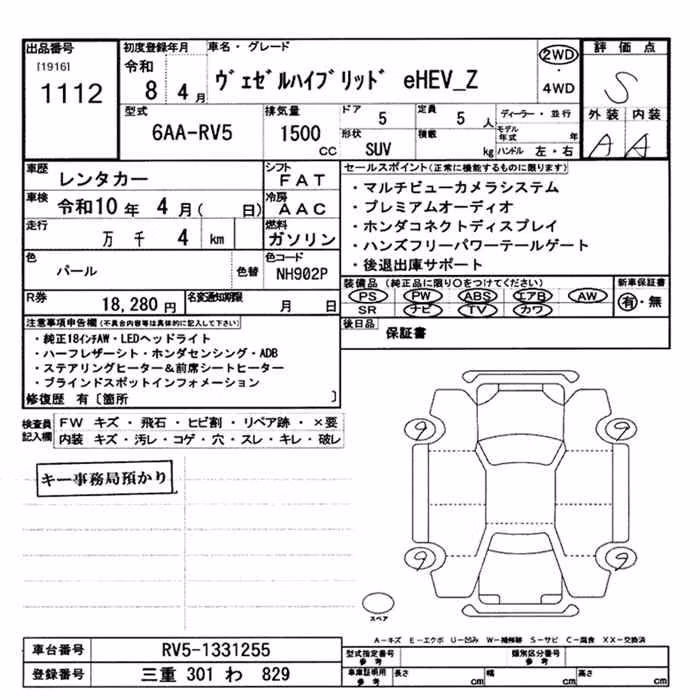 出品番号
[1916]
1112
初度登録年月
令和
8 4 月
車名・グレード
ヴェゼルハイブリッド eHEV_Z
2WD
・
4WD
評価点
S
外装 内装
A A
型式
6AA-RV5
排気量
1500
CC
ドア
5
定員
5 人
形状
SUV
積載
kg
ディーラー・並行
モデル年式 年
ハンドル 左・右
車歴
レンタカー
シフト
FAT
車検
令和10 年 4 月( 日)
冷房
AAC
走行
万 千 4 km
燃料
ガソリン
色
パール
色替
色コード
NH902P
R券
18,280 円
名変通知期限
月 日
セールスポイント(正常に機能するものに限ります)
・マルチビューカメラシステム
・プレミアムオーディオ
・ホンダコネクトディスプレイ
・ハンズフリーパワーテールゲート
・後退出庫サポート
装備品(純正品に限り○をつけてください)
PS PW ABS エアB AW
SR ナビ TV カワ
新車保証書
有・無
後日品
保証書
注意事項申告欄(不具合内容等は具体的に記入して下さい)
・純正18インチAW・LEDヘッドライト
・ハーフレザーシート・ホンダセンシング・ADB
・ステアリングヒーター&前席シートヒーター
・ブラインドスポットインフォメーション
修復歴 有〔箇所 〕
検査員記入欄
FW キズ・飛石・ヒビ割・リペア跡・×要
内装 キズ・汚レ・コゲ・穴・スレ・キレ・破レ
キー事務局預かり
9 9
9 9
スペア
A－キズ E－エクボ U－凹み W－補修跡 S－サビ C－腐食 XX－交換済
車台番号
RV5-1331255
登録番号
三重 301 わ 829
型式指定番号
参考
類別区分番号
参考
車庫証明用
参考
長さ cm
幅 cm
高さ cm